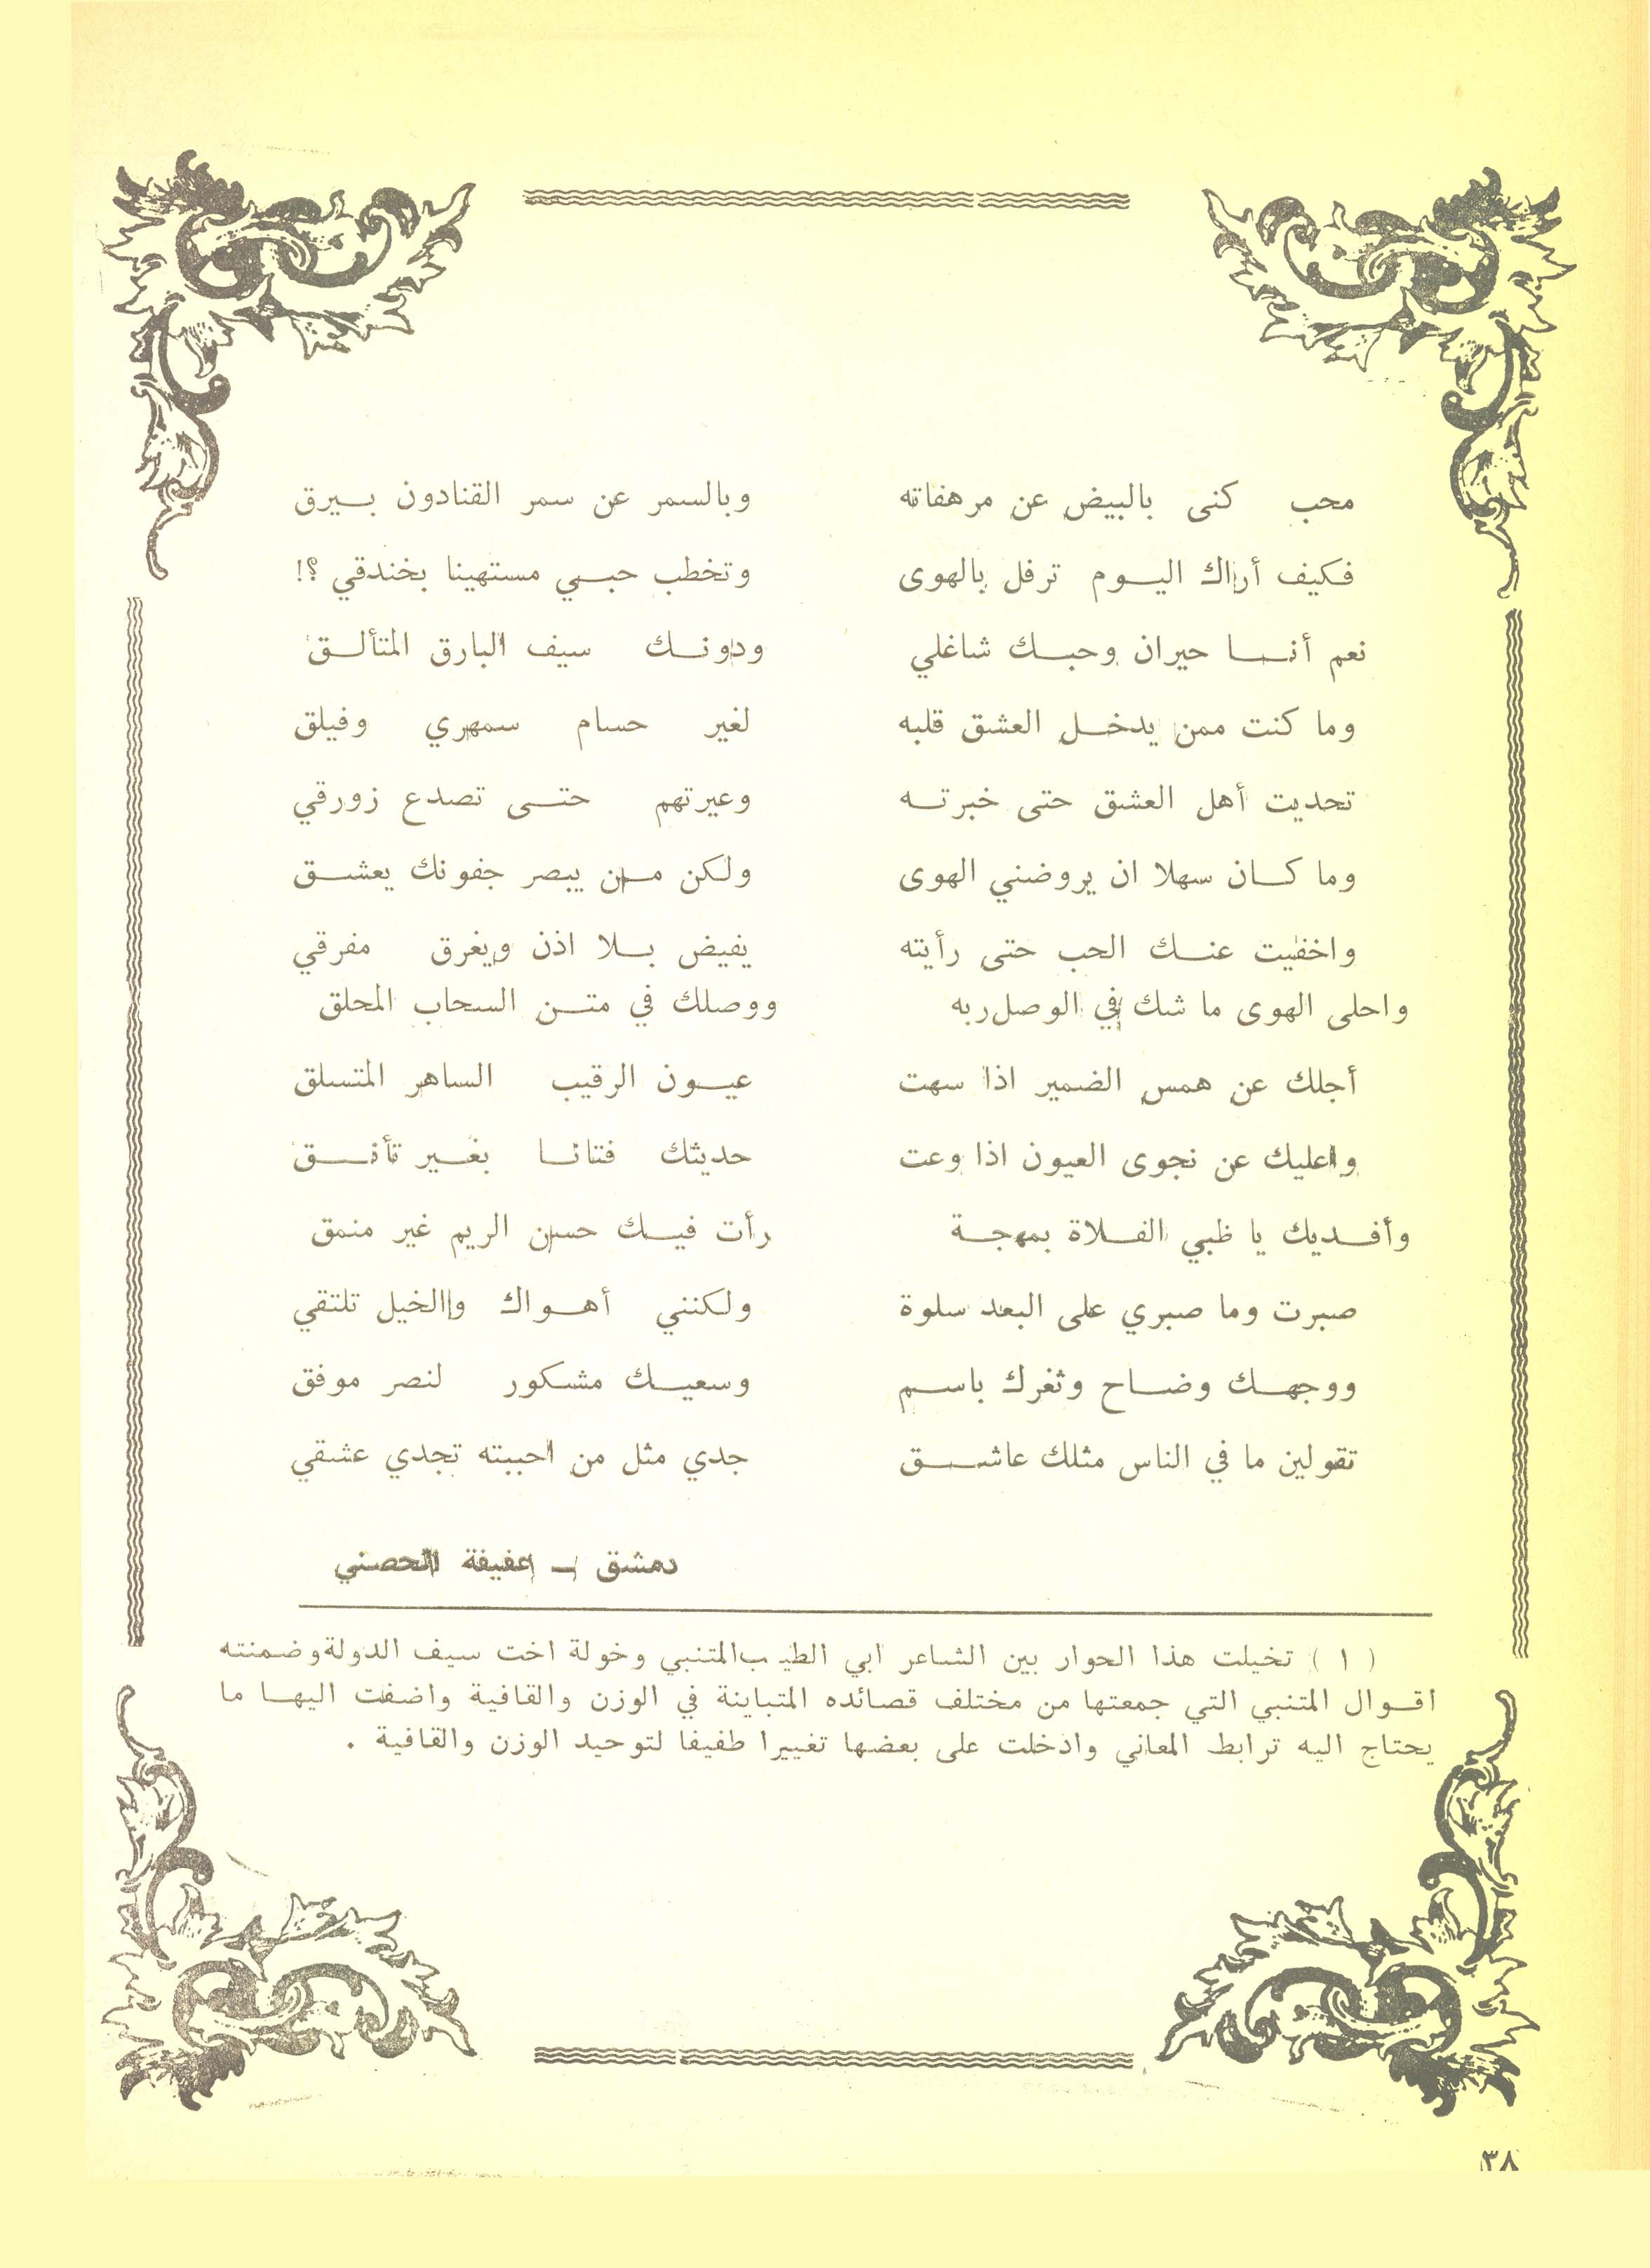 محب كنى بالبيض عن مرهفاته وبالسمر عن سمر القنادون بيرق
فكيف أراك اليوم ترفل بالهوى وتخطب حبي مستهينا بخندقي ؟!
نعم أنا حيران وحبك شاغلي ودونك سيف البارق المتألق
وما كنت ممن يدخل العشق قلبه لغير حسام سمهري وفيلق
تحديت أهل العشق حتى خبرته وعيرتهم حتى تصدع زورقي
وما كان سهلا ان يروضني الهوى ولكن من يبصر جفونك يعشق
واخفيت عنك الحب حتى رأيته يفيض بلا اذن ويغرق مفرقي
واحلى الهوى ما شك في الوصل ربه ووصلك في متن السحاب المحلق
أجلك عن همس الضمير اذا سهت عيون الرقيب الساهر المتسلق
واعليك عن نجوى العيون اذا وعت حديثك فتانا بغير تأنق
وأفديك يا ظبي الفلاة بمهجة رأت فيك حسن الريم غير منمق
صبرت وما صبري على البعد سلوة ولكنني أهواك والخيل تلتقي
ووجهك وضاح وثغرك باسم وسعيك مشكور لنصر موفق
تقولين ما في الناس مثلك عاشق جدي مثل من احببته تجدي عشقي
دمشق ــ عفيفة الحصني
( ١ ) تخيلت هذا الحوار بين الشاعر ابي الطيب المتنبي وخولة اخت سيف الدولة وضمنته
اقوال المتنبي التي جمعتها من مختلف قصائده المتباينة في الوزن والقافية واضفت اليها ما
يحتاج اليه ترابط المعاني وادخلت على بعضها تغييرا طفيفا لتوحيد الوزن والقافية .
٣٨